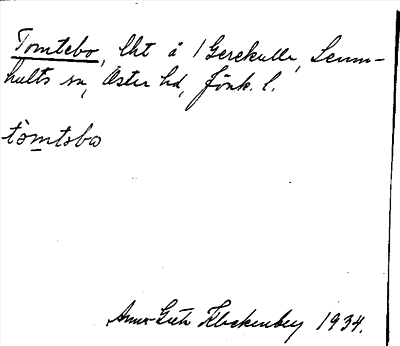 Tomtebo, lht å 1 Gerekulla, Lemn-
hults sn, Öster hd, Jönk. l.
tòmtəbo
Anna-Greta Klockenberg 1934.